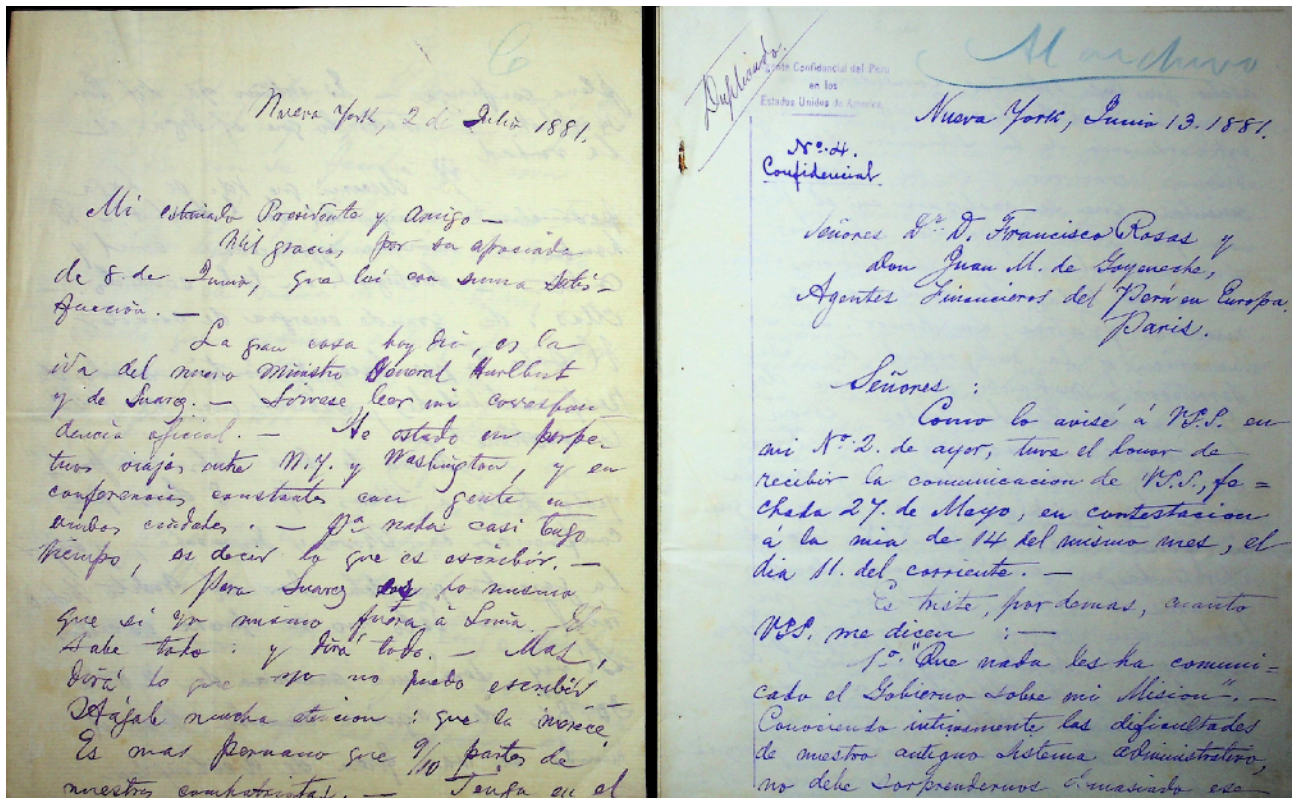 Nueva York, 2 de Julio 1881.
Mi estimado Presidente y Amigo —
Mil gracias, por su apreciada
de 8 de Junio, que leí con suma satis-
facción. —
La gran cosa hoy dia, es la
ida del nuevo Ministro General Hurlbut
y de Suarez. — Sírvase leer mi correspon-
dencia oficial. — He estado en perpe-
tuos viajes entre N.Y. y Washington, y en
conferencias constantes con gente en
ambas ciudades. — Pª nada casi tengo
tiempo, es decir lo que es escribir. —
Pero Suarez lo mismo
que si yo mismo fuera á Lima. El
sabe todo : y dirá todo. — Mas,
dirá lo que yo no puedo escribir
Hágale mucha atencion : que la merece.
Es mas peruano que 9/10 partes de
nuestros compatriotas. — Tenga en el
Duplicado.
Al archivo
Agente Confidencial del Perú
en los
Estados Unidos de America
Nueva York, Junio 13. 1881.
Nº. 4.
Confidencial.
Señores Dr. D. Francisco Rosas y
Don Juan M. de Goyeneche,
Agentes Financieros del Perú en Europa.
Paris.
Señores :
Como lo avisé á V.S.S. en
mi Nº. 2. de ayer, tuve el honor de
recibir la comunicacion de V.S.S., fe=
chada 27. de Mayo, en contestacion
á la mia de 14 del mismo mes, el
dia 11. del corriente. —
Es triste, por demas, cuanto
VSS. me dicen : —
1º. "Que nada les ha comuni=
cado el Gobierno sobre mi Mision". —
Conociendo intimamente las dificultades
de nuestro antiguo sistema administrativo,
no debe sorprendernos demasiado ese